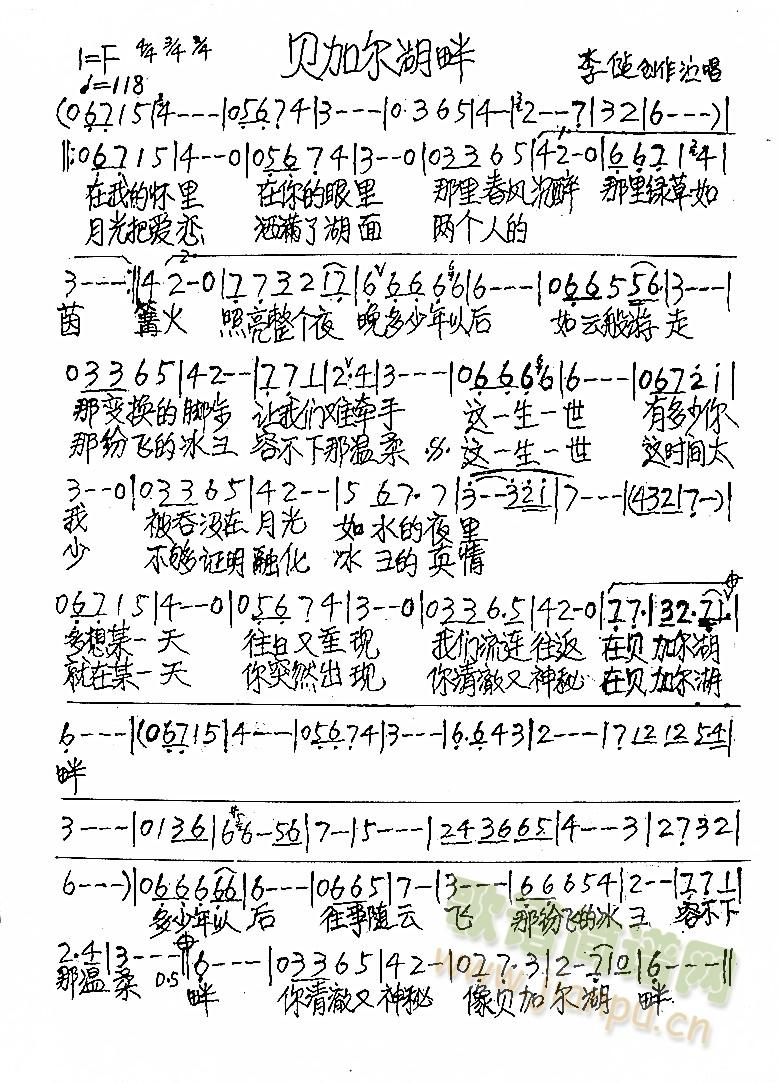 1=F 4/4 3/4 2/4 贝加尔湖畔 李健创作演唱
♩=118
(0 6 7 1 5 | 4 - - - | 0 5 6 7 4 | 3 - - - | 0· 3 6 5 | 4 - | 2 - - 7 | 3 2 | 6 - - - ) |
‖: 0 6 7 1 5 | 4 - - 0 | 0 5 6 7 4 | 3 - - 0 | 0 3 3 6 5 | 4 2 - 0 | 6 6 7 1 2 4 |
在我的怀里 在你的眼里 那里春风沉醉 那里绿草如
月光把爱恋 洒满了湖面 两个人的
3 - - - :‖ 4 2 - 0 | 7 7 3 2 1 7 | 6 6 6 6 6 | 6 - - - | 0 6 6 5 5 6· | 3 - - - |
茵 篝火 照亮整个夜 晚多少年以后 如云般游 走
0 3 3 6 5 | 4 2 - - | 7 7 1 | 2· 4 | 3 - - - | 0 6 6 6 6 | 6 - - - | 0 6 7 2 1 |
那变换的脚步 让我们难牵手 这一生一世 有多少你
那纷飞的冰雪 容不下那温柔 𝄋 这一生一世 这时间太
3 - - 0 | 0 3 3 6 5 | 4 2 - - | 5 6 7· 7 | 3 - - 3 2 1 | 7 - - - | (4 3 2 | 7 - ) |
我 被吞没在 月光 如水的夜里
少 不够证明融化 冰雪的真情
0 6 7 1 5 | 4 - - 0 | 0 5 6 7 4 | 3 - - 0 | 0 3 3 6· 5 | 4 2 - 0 | 7 7· | 3 2· 7 1· |
多想某一天 往日又重现 我们流连往返 在贝加尔湖
就在某一天 你突然出现 你清澈又神秘 在贝加尔湖
6 - - - ‖ (0 6 7 1 5 | 4 - - - | 0 5 6 7 4 | 3 - - - | 6· 6 4 3 | 2 - - - | 7 1 2 1 2 5 4 |
畔
3 - - - | 0 1 3 6 | 6 6 - 5 6 | 7 - - | 5 - - - | 2 4 3 6 6 5 | 4 - - 3 | 2 7 3 2 |
6 - - - ) | 0 6 6 6 6 6 | 6 - - - | 0 6 6 5 | 7 - | 3 - - - | 6 6 6 5 4 | 2 - - | 7 7 1 |
多少年以 后 往事随云 飞 那纷飞的冰雪 容不下
2· 4 | 3 - - - ‖ 6 - - - | 0 3 3 6 5 | 4 2 - | 0 2 7· 3 | 2 - 7 1 0 | 6 - - - ‖
那温柔 D.S 畔 你清澈又神秘 像贝加尔湖 畔
歌谱简谱网
www.jianpu.cn